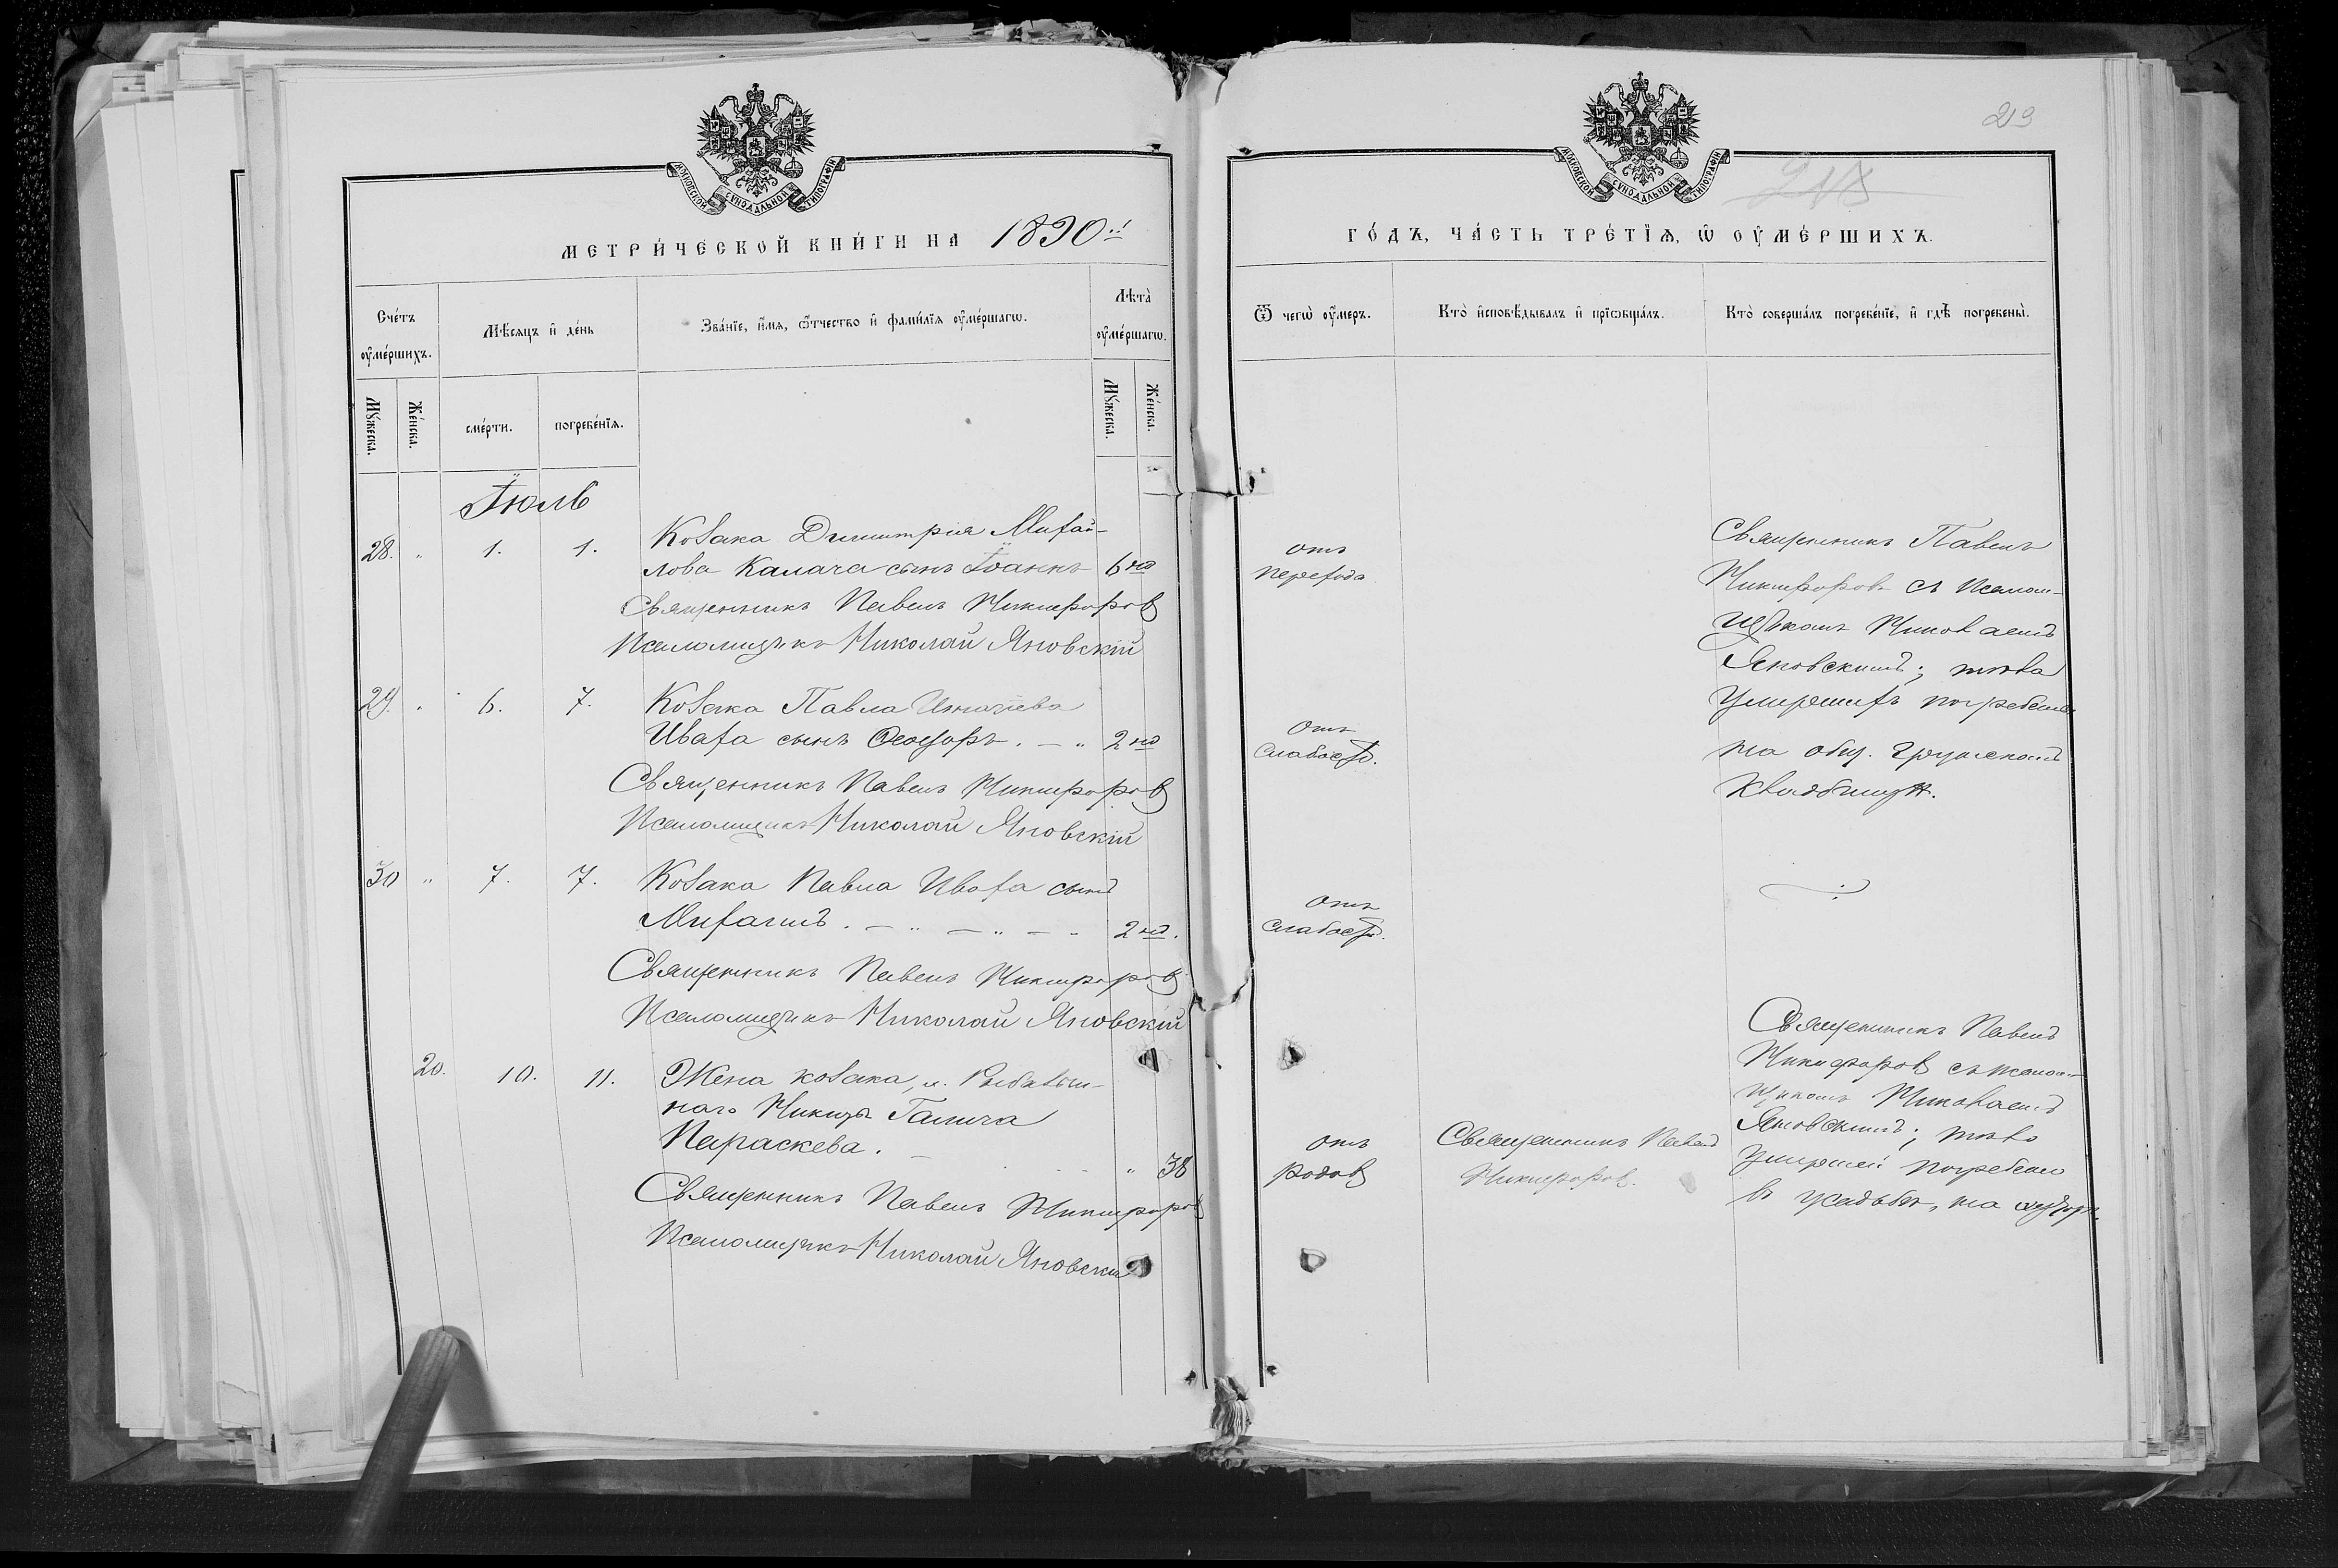 МОСКОВСКОЙ СѴНОДАЛЬНОЙ ТИПОГРАФІИ
МЕТРИ́ЧЕСКОЙ КНИ́ГИ НА 1890й
Сче́тъ оу҆ме́ршихъ.
Мѣ́сяцъ и҆ де́нь
Зва́нїе, и҆́мѧ, ѻ҆́тчество и҆ фами́лїѧ оу҆ме́ршагѡ.
Лѣта̀ оу҆ме́ршагѡ.
Мꙋ́жеска.
Же́нска.
сме́рти.
погребе́нїѧ.
Мꙋ́жеска.
Же́нска.
Іюль
28. " 1. 1. Козака Димитрія Михай-
лова Калача сынъ Іоаннъ 6 нд
Священникъ Павелъ Никифоровъ
Псаломщикъ Николай Яновскій
29. " 6. 7. Козака Павла Игнатіева
Иваха сынъ Ѳеодоръ. — " 2 нд
Священникъ Павелъ Никифоровъ
Псаломщикъ Николай Яновскій
30 " 7. 7. Козака Павла Иваха сынъ
Михаилъ. — " — " — " 2 нд.
Священникъ Павелъ Никифоровъ
Псаломщикъ Николай Яновскій
20. 10. 11. Жена козака, м.
наго Никиты Галича
Параскева. " 38
Священникъ Павелъ Никифоровъ
Псаломщикъ Николай Яновскій
219
218
МОСКОВСКОЙ СѴНОДАЛЬНОЙ ТИПОГРАФІИ
ГО́ДЪ, ЧА́СТЬ ТРЕ́ТЇѦ, Ѡ҆ ОУ҆МЕ́РШИХЪ.
Ѿ чегѡ̀ оу҆́меръ.
Кто̀ и҆сповѣ́дывалъ и҆ прїѡбща́лъ.
Кто̀ соверша́лъ погребе́нїе, и҆ гдѣ̀ погребены̀.
отъ
перехода
Священникъ Павелъ
Никифоровъ съ псалом-
щикомъ Николаемъ
Яновскимъ; тѣла
умершихъ погребены
на общ.
кладбищѣ.
Отъ
слабости.
отъ
слабости.
отъ
родовъ
Священникъ Павелъ
Никифоровъ.
Священникъ Павелъ
Никифоровъ съ псалом-
щикомъ Николаемъ
Яновскимъ; тѣло
умершей погребено
въ усадьбѣ, на хуторѣ.